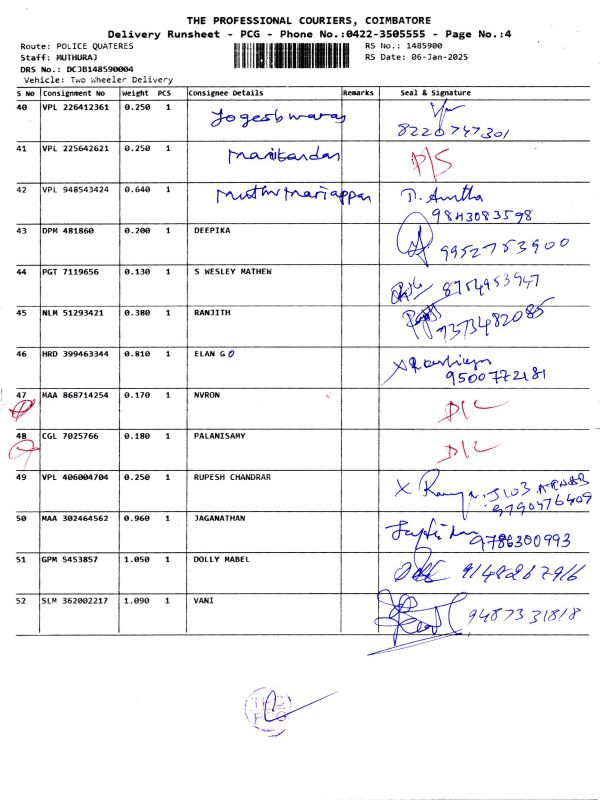 THE PROFESSIONAL COURIERS, COIMBATORE
Delivery Runsheet - PCG - Phone No.:0422-3505555 - Page No.:4
Route: POLICE QUATERES RS No.: 1485900
Staff: MUTHURAJ RS Date: 06-Jan-2025
DRS No.: DCJB148590004
Vehicle: Two Wheeler Delivery
S No Consignment No Weight PCS Consignee Details Remarks Seal & Signature
40 VPL 226412361 0.250 1 Yogeshwaran
8220747301
41 VPL 225642621 0.250 1 Manikandan D/S
42 VPL 948543424 0.640 1 Muthu Mariappan
9843083598
43 DPM 481860 0.200 1 DEEPIKA 9952753900
44 PGT 7119656 0.130 1 S WESLEY MATHEW 8754953947
45 NLM 51293421 0.380 1 RANJITH 7373482085
46 HRD 399463344 0.810 1 ELAN GO
9500772181
47 MAA 868714254 0.170 1 NVRON D/L
48 CGL 7025766 0.180 1 PALANISAMY D/L
49 VPL 406004704 0.250 1 RUPESH CHANDRAR
50 MAA 302464562 0.960 1 JAGANATHAN 9786300993
51 GPM 5453857 1.050 1 DOLLY MABEL
52 SLM 362002217 1.090 1 VANI 9487331818